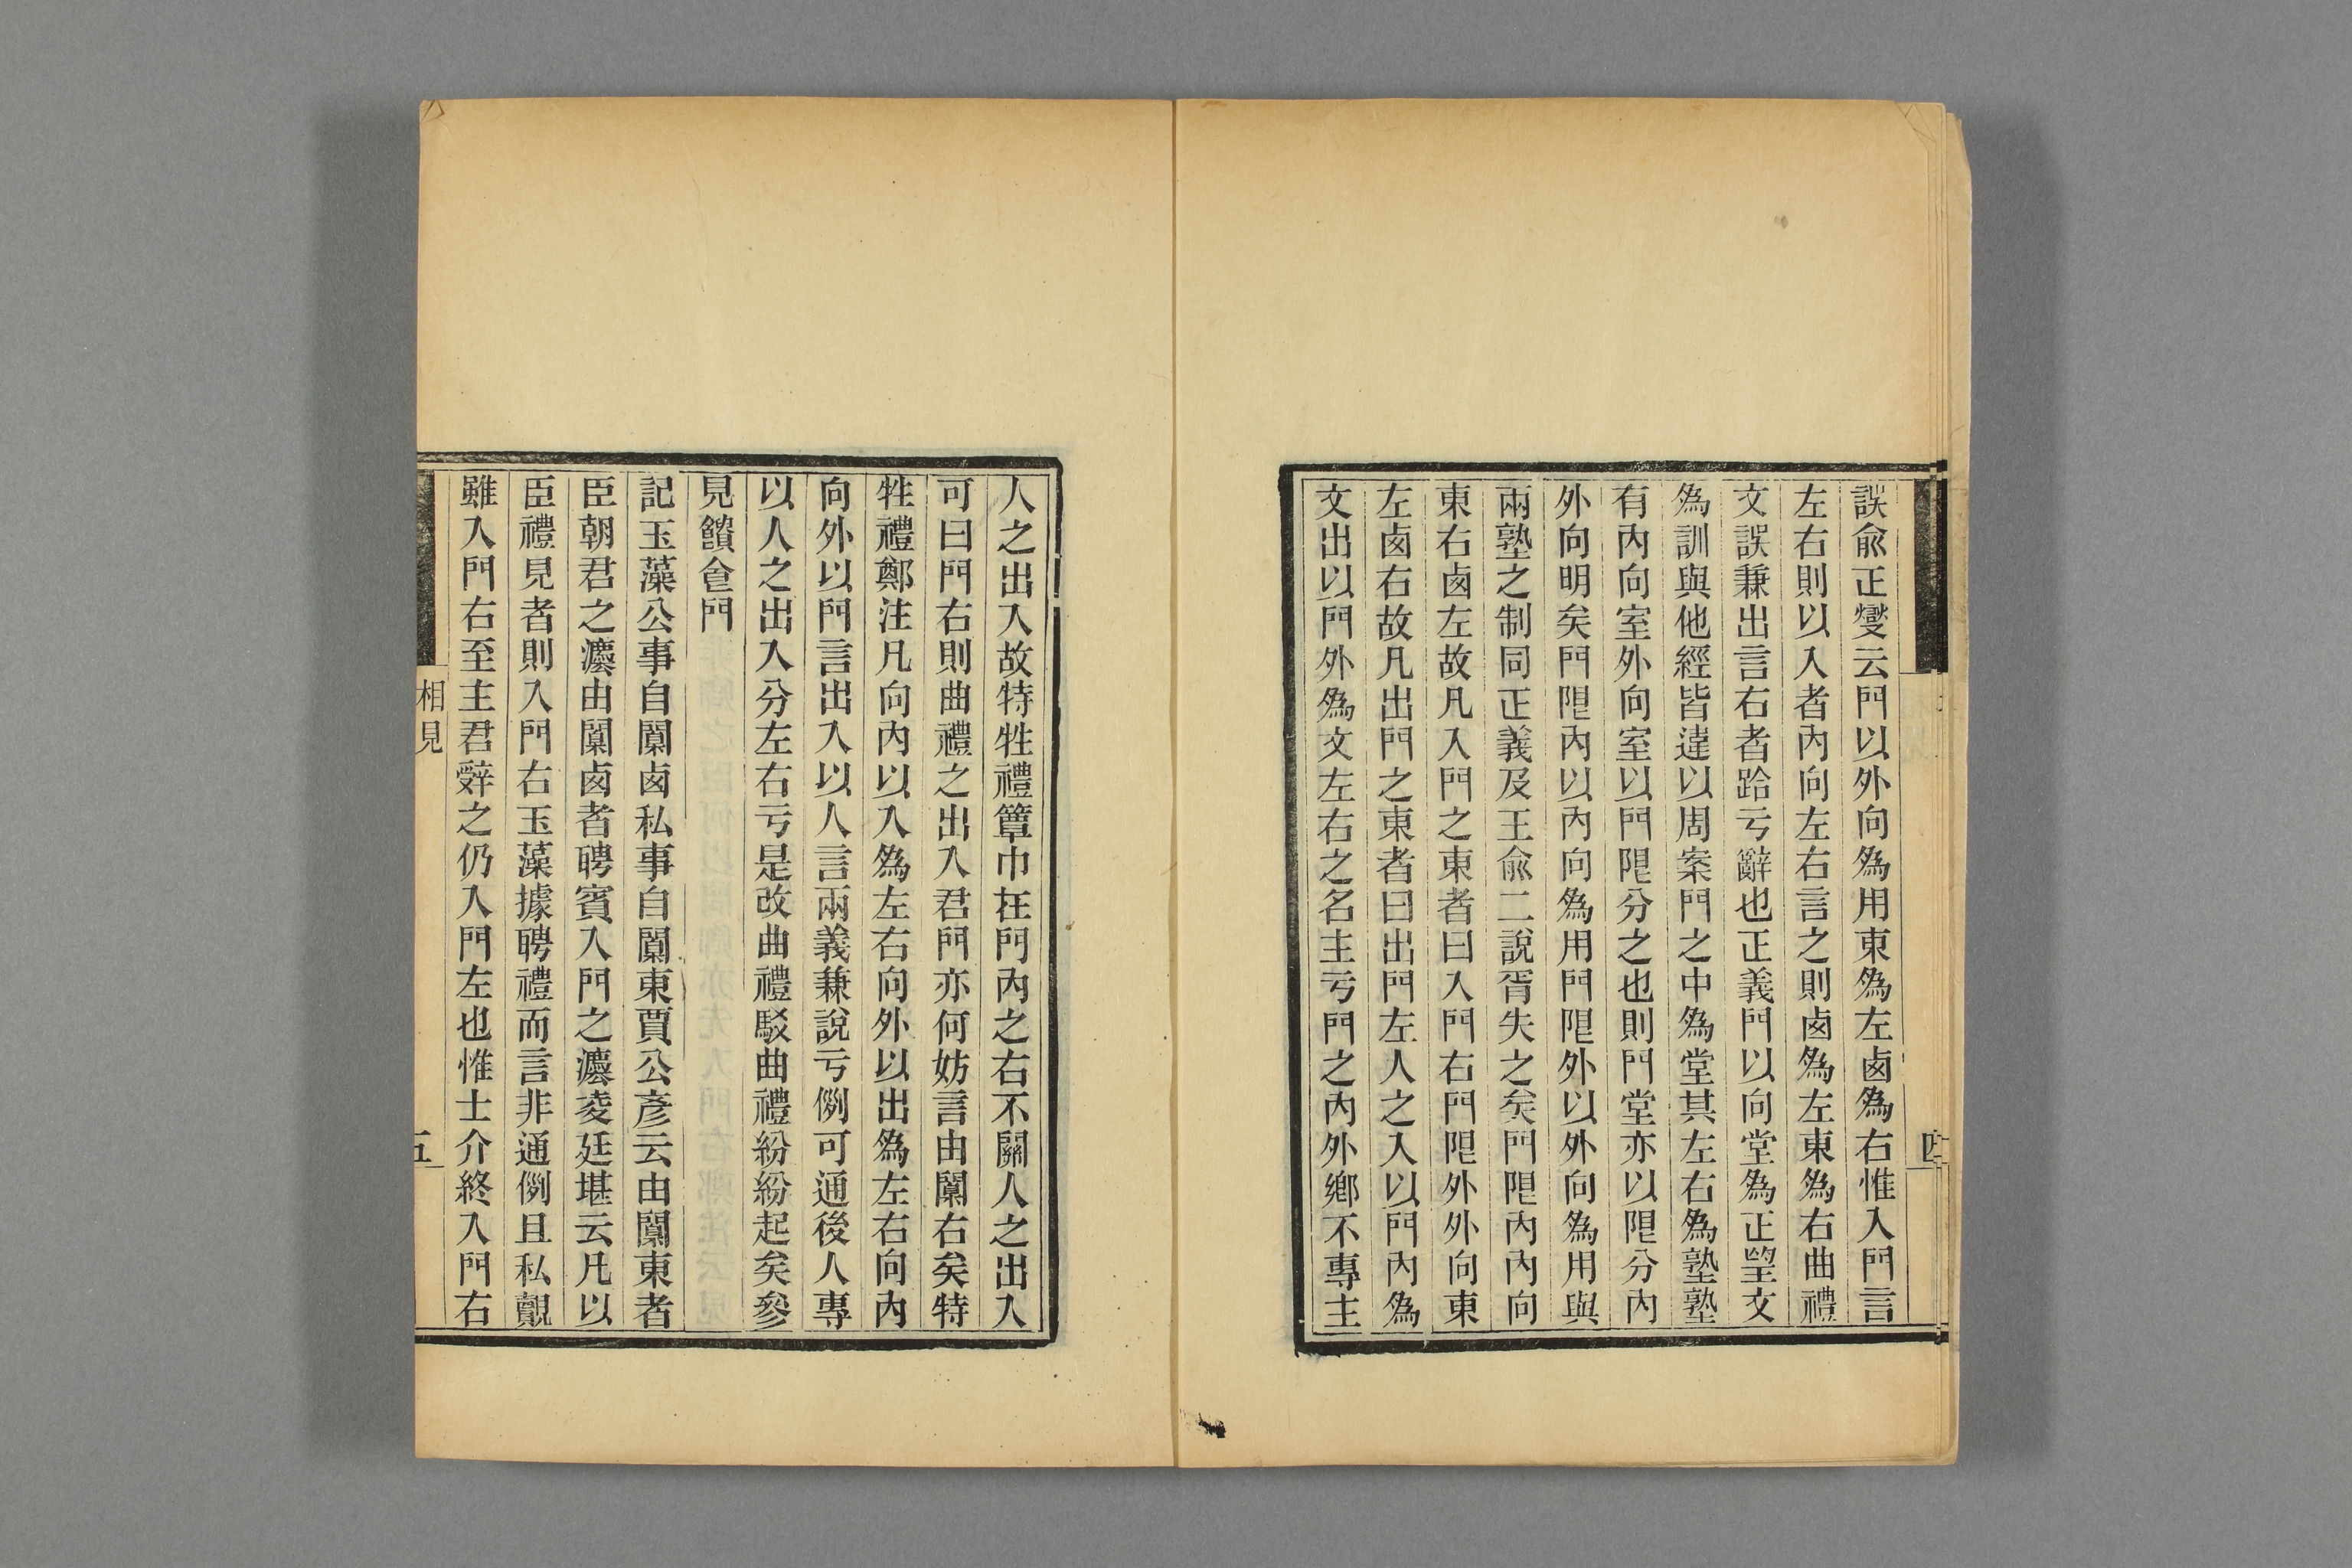 誤兪正燮云門以外向爲用東爲左㢴爲右惟入門言
左右則以入者內向左右言之則㢴爲左東爲右曲禮
文誤兼出言右者跲亏辭也正義門以向堂爲正望文
爲訓與他經皆違以周案門之中爲堂其左右爲塾塾
有內向室外向室以門限分之也則門堂亦以限分內
外向明矣門限內以內向爲用門限外以外向爲用與
兩塾之制同正義及王兪二說胥失之矣門限內內向
東右㢴左故凡入門之東者曰入門右門限外外向東
左㢴右故凡出門之東者曰出門左人之入以門內爲
文出以門外爲文左右之名主亏門之內外鄉不專主
四
人之出入故特牲禮簟巾在門內之右不關人之出入
可曰門右則曲禮之出入君門亦何妨言由闑右矣特
牲禮鄭注凡向內以入爲左右向外以出爲左右向內
向外以門言出入以人言兩義兼說亏例可通後人專
以人之出入分左右亏是改曲禮駁曲禮紛紛起矣參
見饋食門
記玉藻公事自闑㢴私事自闑東賈公彥云由闑東者
臣朝君之灋由闑㢴者聘賓入門之灋凌廷堪云凡以
臣禮見者則入門右玉藻據聘禮而言非通例且私覿
雖入門右至主君辭之仍入門左也惟士介終入門右
相見
五